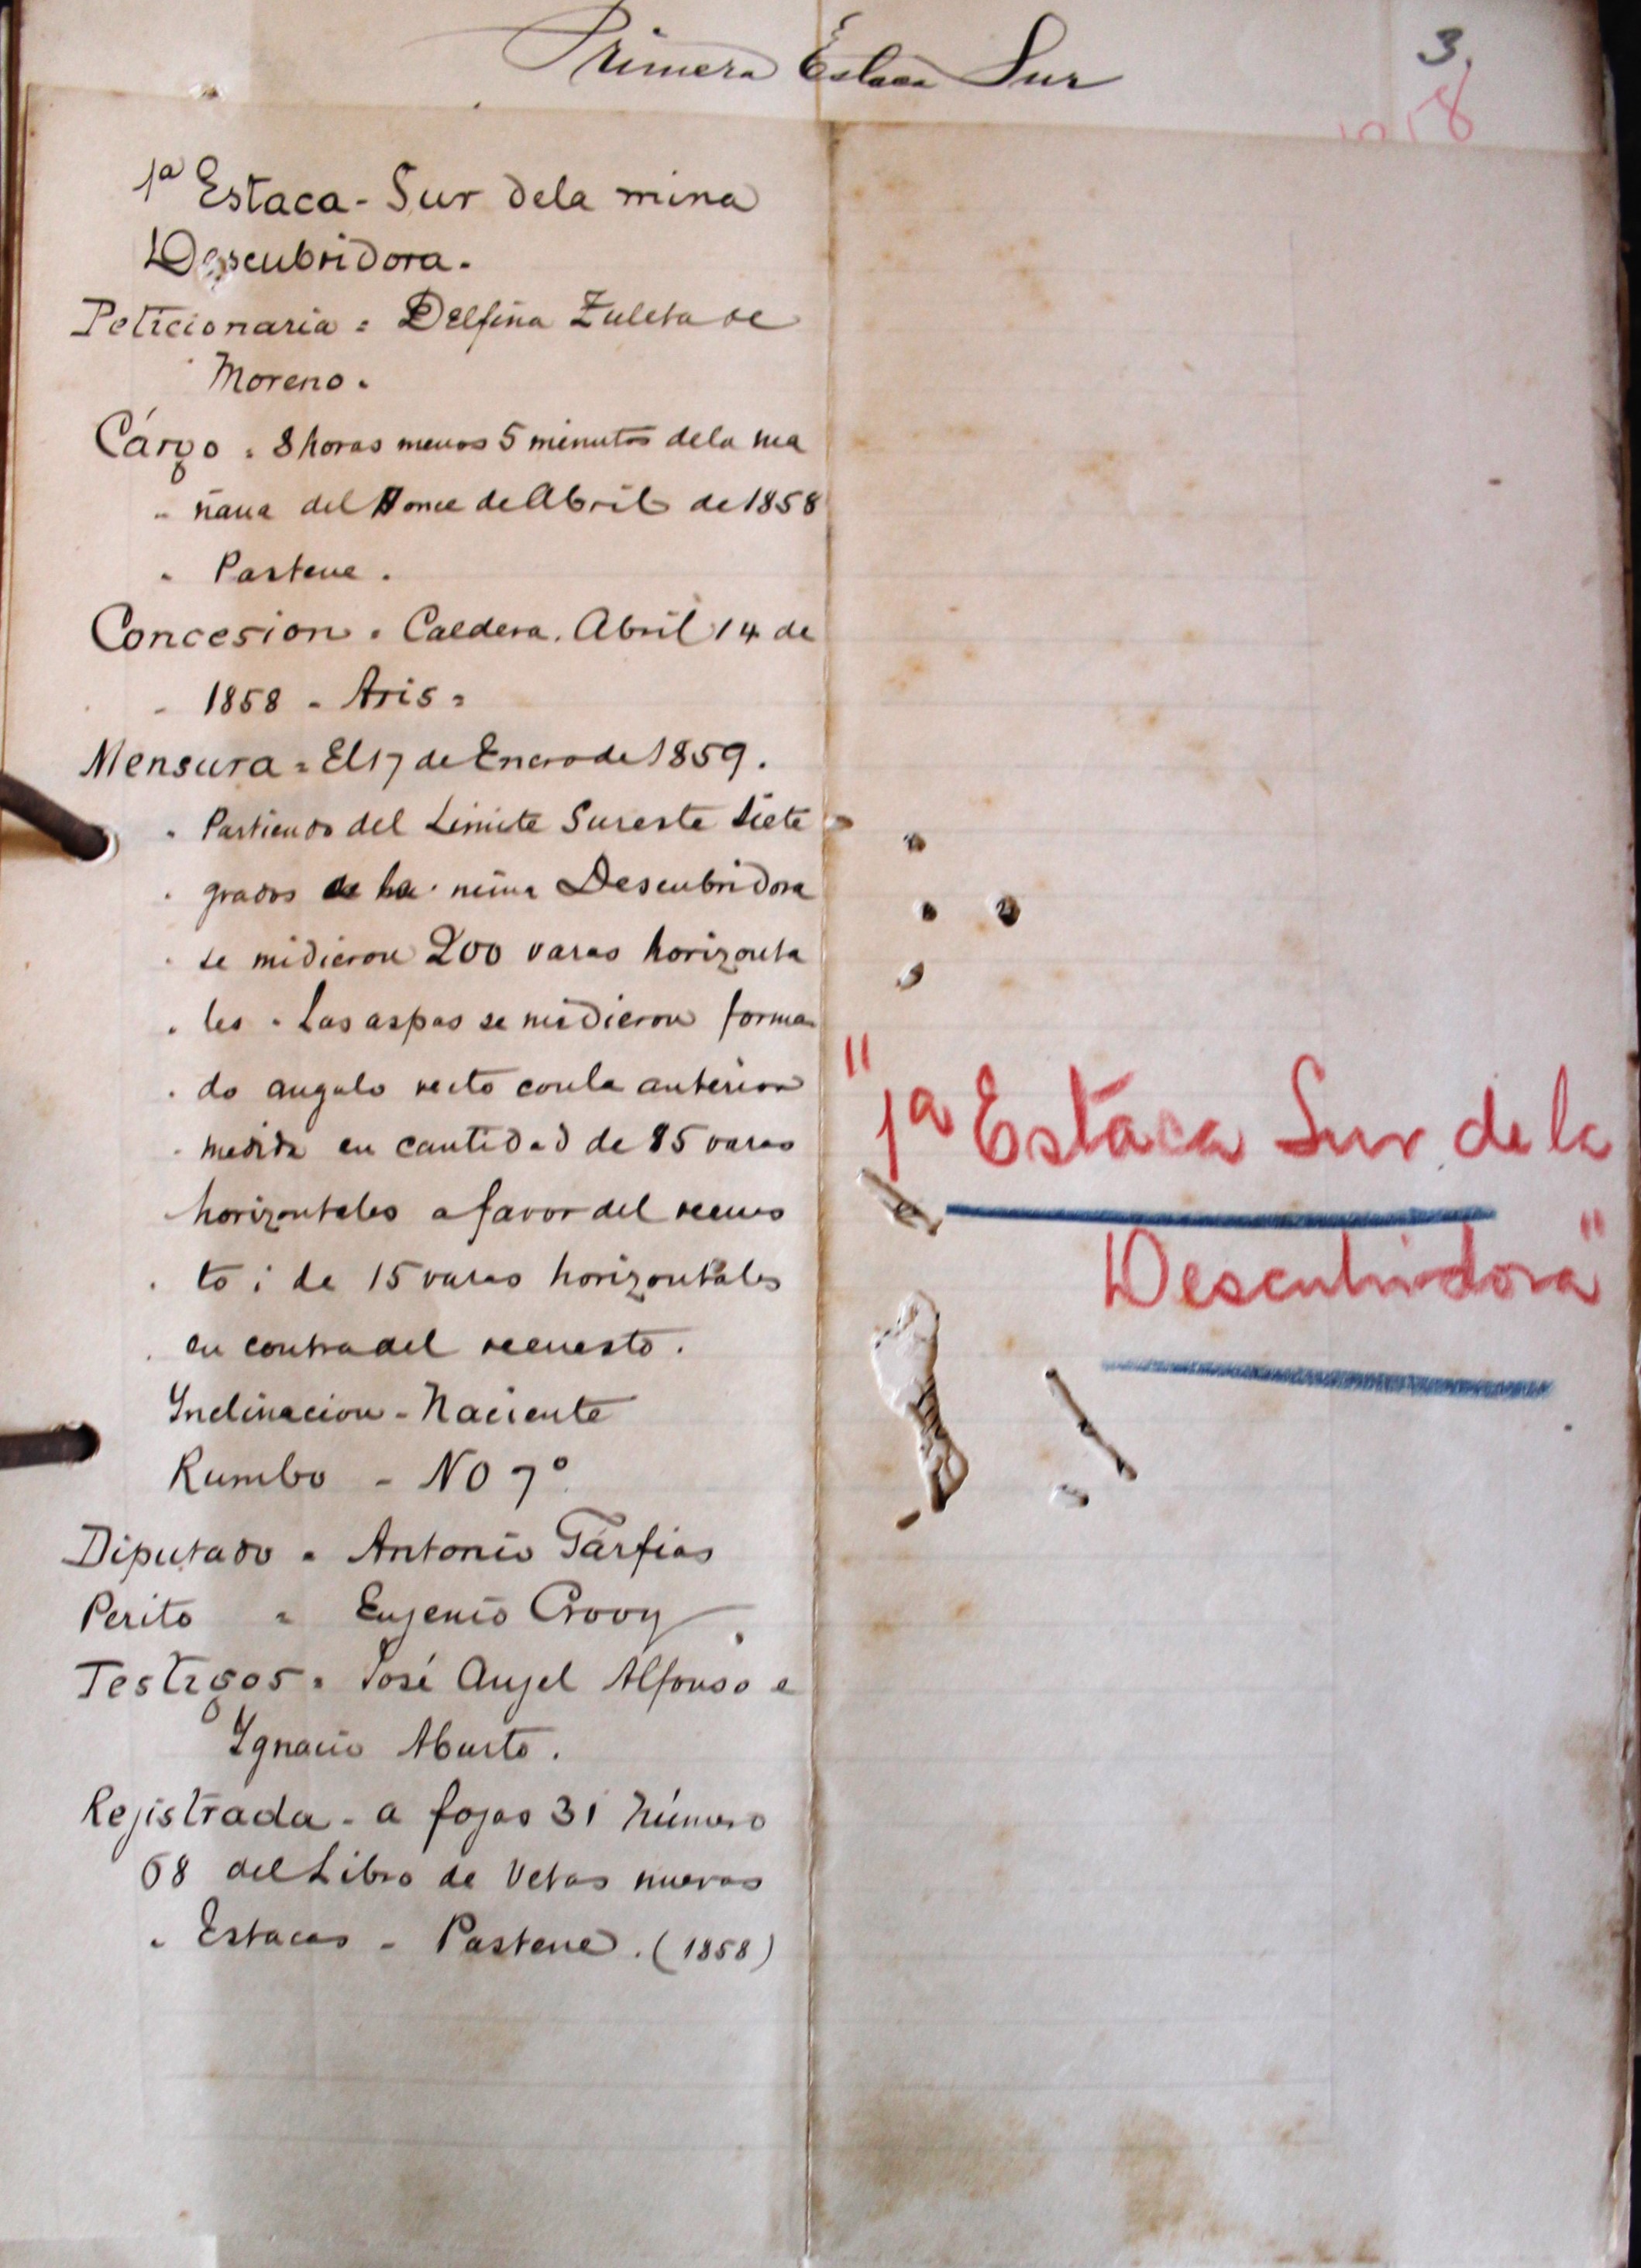 Primera Estaca Sur
3.
1ª Estaca - Sur dela mina
Descubridora.
Peticionaria = Delfina Zuleta de
Moreno.
Cárgo = 8 horas menos 5 minutos dela ma
" ñana del once de Abril de 1858
" Pastene.
Concesion = Caldera. Abril 14 de
" 1858 - Aris =
Mensura = El 17 de Enero de 1859.
" Partiendo del Limite Sureste siete
" grados de la mina Descubridora
" se midieron 200 varas horizonta
" les - Las aspas se midieron forma
" do angulo recto conla anterior
" medida en cantidad de 85 varas
horizontales a favor del recues
" to i de 15 varas horizontales
" en contra del recuesto.
Inclinacion - Naciente
Rumbo - NO 7°
Diputado = Antonio Tárfias
Perito = Eujenio Crooy
Testigos = José Anjel Alfonso e
Ygnacio Aburto.
Rejistrada - a fojas 31 número
68 del Libro de Vetas nuevas
" Estacas - Pastene. (1858)
"1ª Estaca Sur de la
Descubridora"